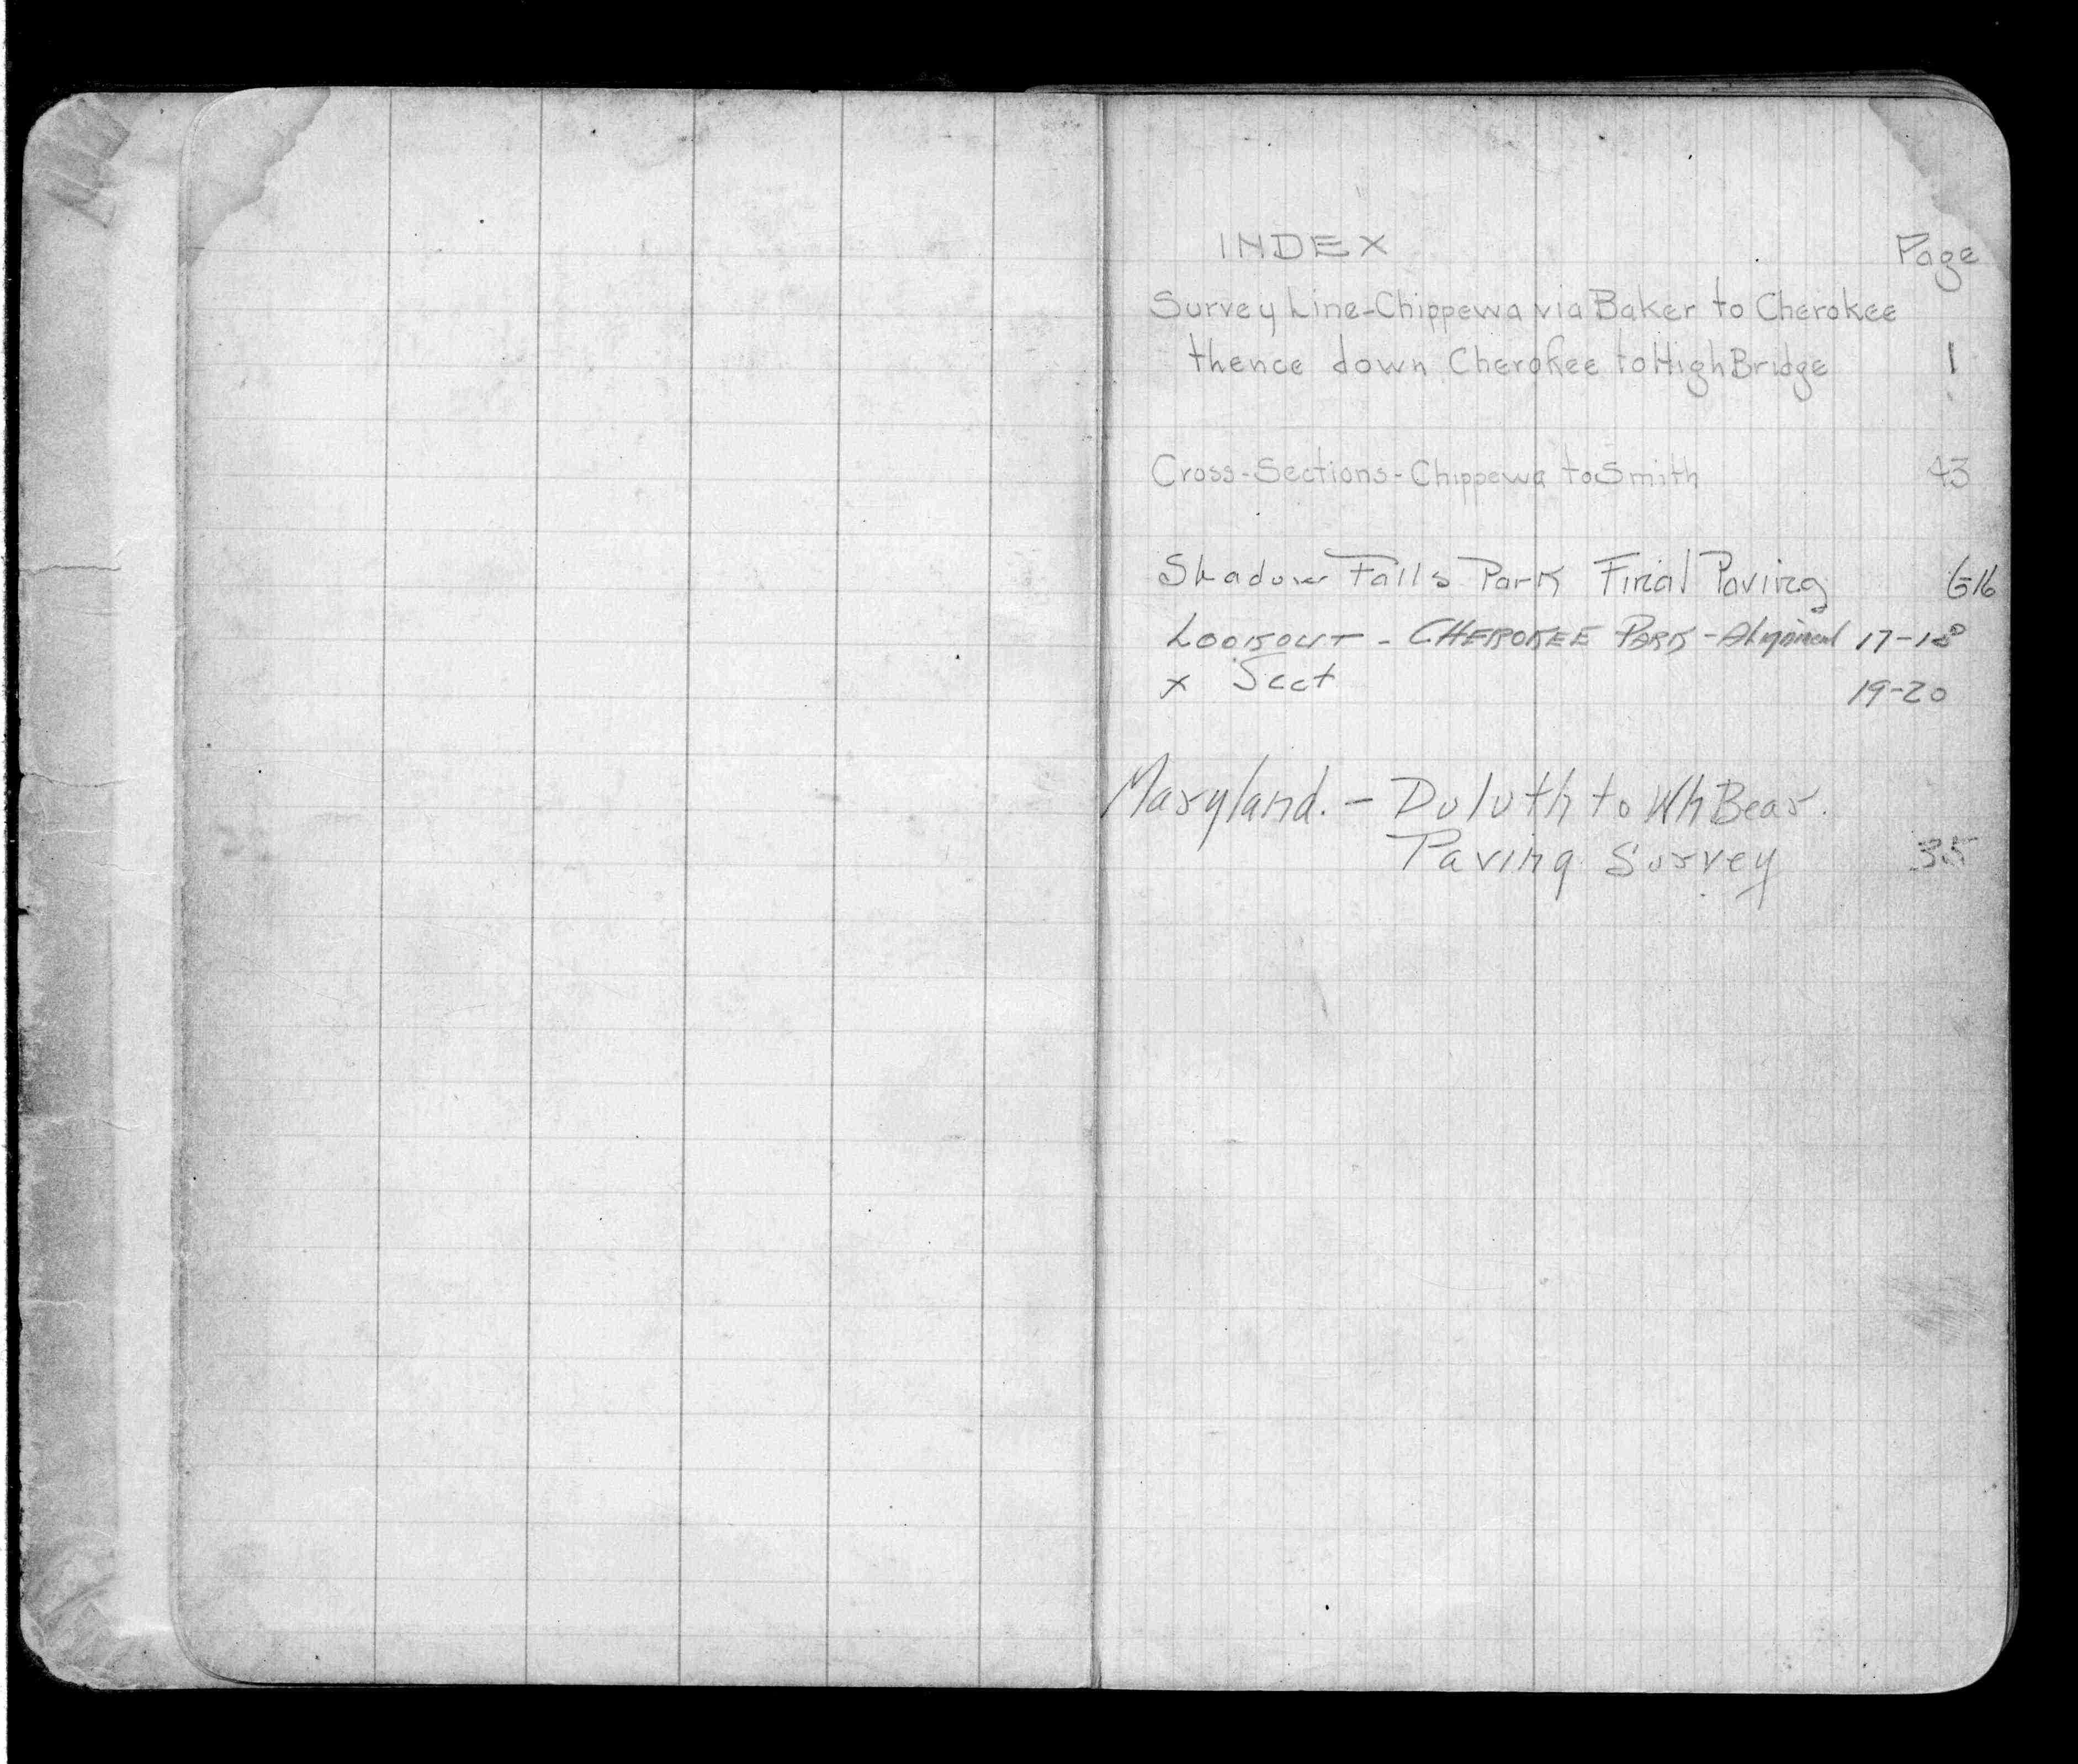 INDEX Page
Survey Line-Chippewa via Baker to Cherokee
thence down Cherokee to High Bridge 1
Cross-Sections-Chippewa to Smith 43
Shadow Falls Park Final Paving 6-16
LOOKOUT - CHEROKEE PARK - Alignment 17-18
x Sect 19-20
Maryland. - Duluth to Wh Bear.
Paving Survey 35